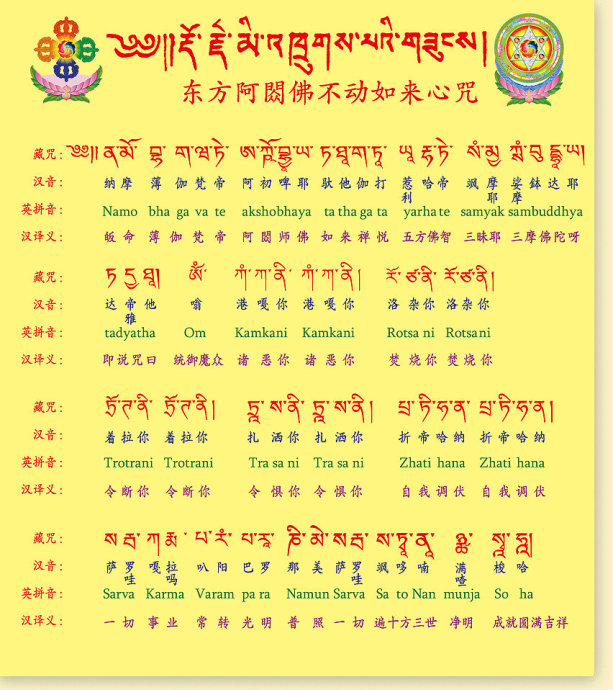 ༄༅།།རྡོ་རྗེ་མི་འཁྲུགས་པའི་གཟུངས།
东方阿閦佛不动如来心咒
藏咒：༄༅།། ན་མོ་ བྷ་ ག་ཝ་ཏེ་
汉音：纳摩 薄 伽梵帝 阿初啤耶 驮他伽打 惹哈帝 飒摩 娑鉢达耶
利 耶 摩
英拼音：Namo bha ga va te akshobhaya ta tha ga ta yarha te samyak sambuddhya
汉译义：皈命 薄伽梵帝 阿閦师佛 如来禅悦 五方佛智 三昧耶 三摩佛陀呀
藏咒：ཏ དྱ ཐཱ། ཨོཾ་ ཀཾ་ཀ་ནི་ ཀཾ་ཀ་ནི། རོ་ཙ་ནི་ རོ་ཙ་ནི།
汉音：达帝他 嗡 港嘎你 港嘎你 洛杂你 洛杂你
雅
英拼音：tadyatha Om Kamkani Kamkani Rotsa ni Rotsani
汉译义：即说咒曰 统御魔众 诸恶你 诸恶你 焚烧你 焚烧你
藏咒：ཏྲོ་ཊ་ནི་ ཏྲོ་ཊ་ནི། ཏྲཱ་ས་ནི་ ཏྲཱ་ས་ནི། པྲ་ཏི་ཧ་ན་ པྲ་ཏི་ཧ་ན།
汉音：着拉你 着拉你 扎洒你 扎洒你 折帝哈纳 折帝哈纳
英拼音：Trotrani Trotrani Tra sa ni Tra sa ni Zhati hana Zhati hana
汉译义：令断你 令断你 令惧你 令惧你 自我调伏 自我调伏
藏咒：ས་རྦ་ ཀ་རྨ་ པ་རཾ་ པ་ར་
汉音：萨罗 嘎拉 叭阳 巴罗 那美 萨罗 飒哆喃 满 梭哈
哇 吗 哇 喳
英拼音：Sarva Karma Varam pa ra Namun Sarva Sa to Nan munja So ha
汉译义：一切 事业 常转 光明 普照 一切 遍十方三世 净明 成就圆满吉祥